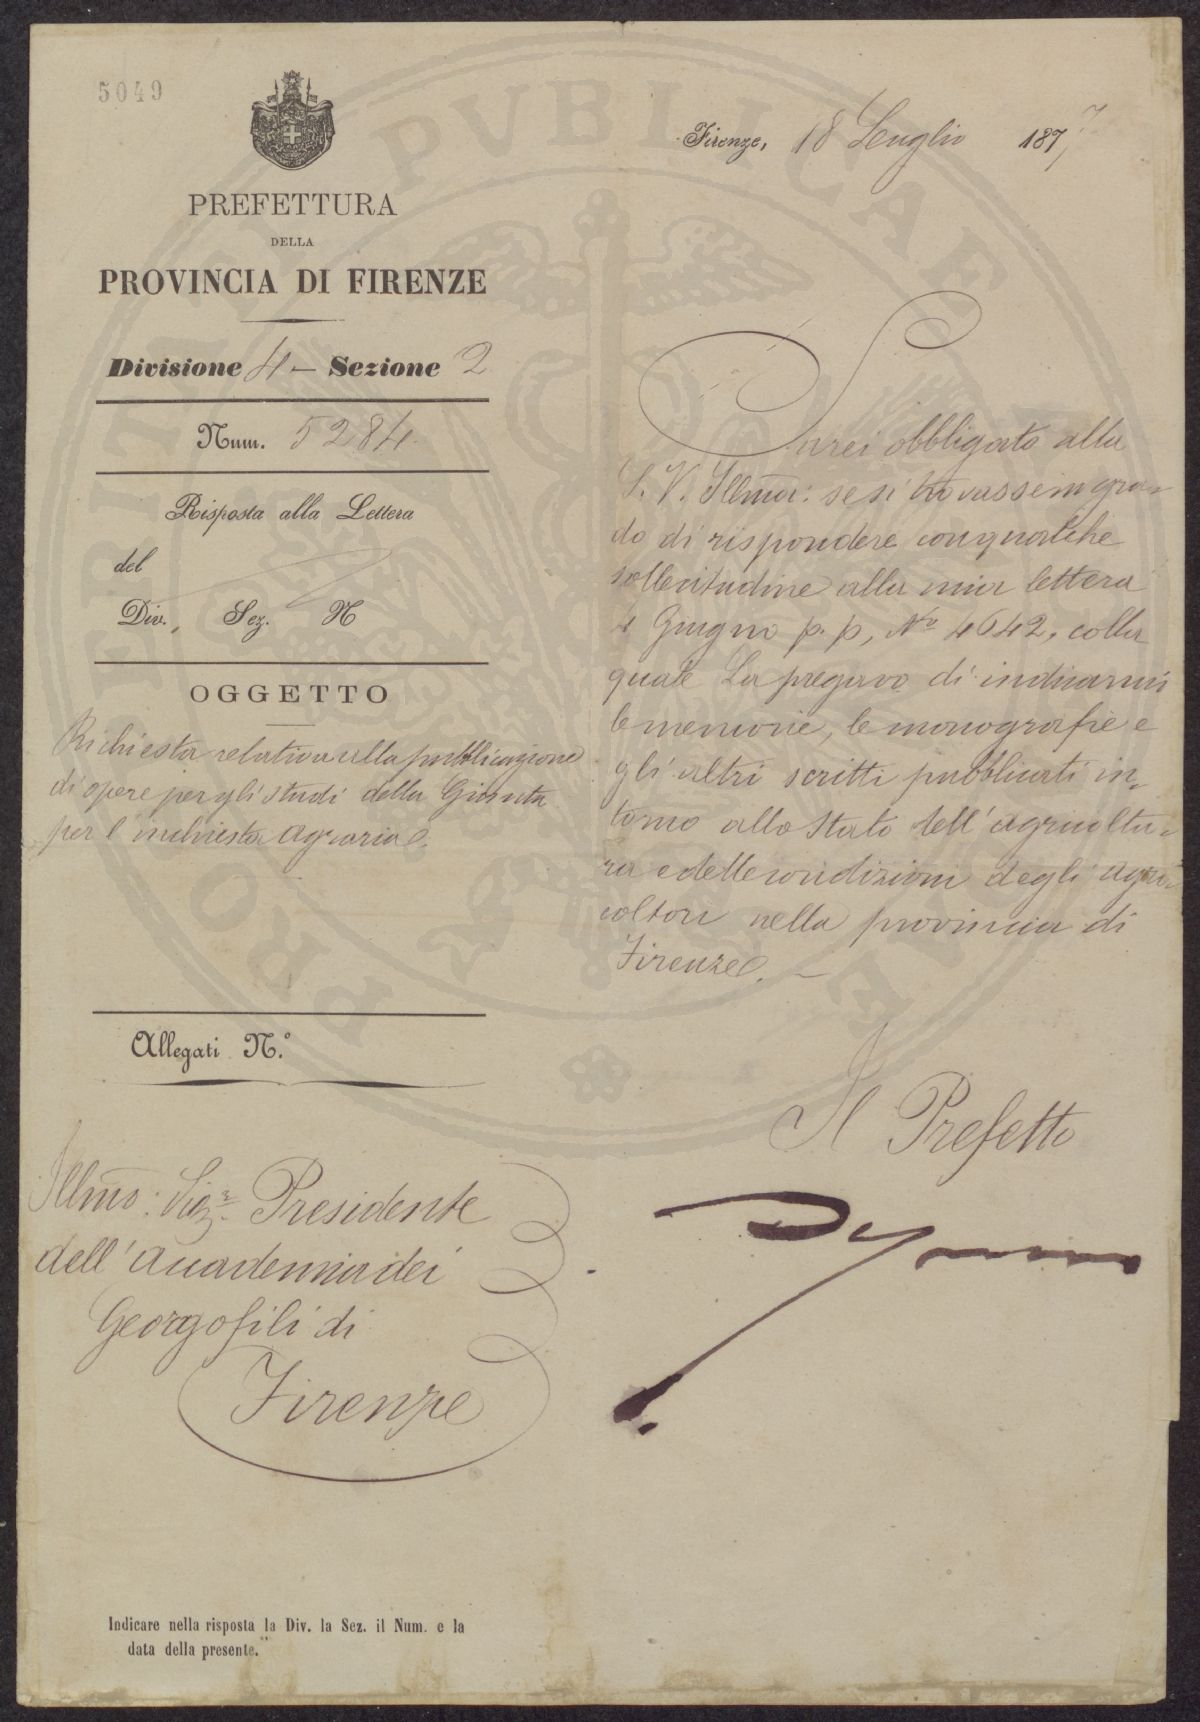 5049
Firenze, 18 Luglio 1877
PREFETTURA
DELLA
PROVINCIA DI FIRENZE
Divisione 4 – Sezione 2
Num. 5284
Risposta alla Lettera
del
Div., Sez. N
OGGETTO
Richiesta relativa alla pubblicazione
di opere per gli studi della Giunta
per l'inchiesta agraria.
Allegati N.º
Illmo: Sigr. Presidente
dell'Accademia dei
Georgofili di
Firenze
Indicare nella risposta la Div. la Sez. il Num. e la
data della presente.
Sarei obbligato alla
S. V. Illma: se si trovasse in gra-
do di rispondere con qualche
sollecitudine alla mia lettera
4 Giugno p. p, No 4642, colla
quale La pregavo di indicarmi
le memorie, le monografie e
gli altri scritti pubblicati in-
torno allo stato dell'agricoltu-
ra e delle condizioni degli agri
coltori nella provincia di
Firenze. –
Il Prefetto
PUBLICAE